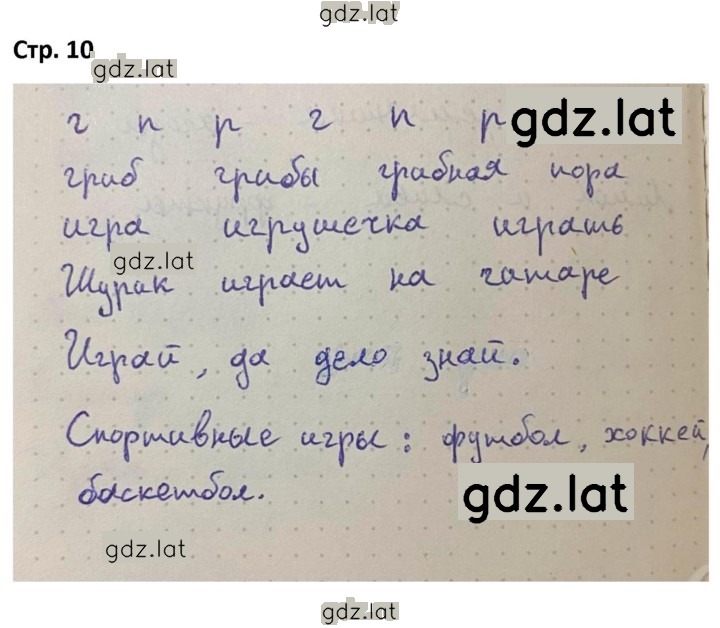 gdz.lat
Стр. 10
gdz.lat
г п р г п р gdz.lat
гриб грибы грибная пора
игра игрушечка играть
gdz.lat
Шурик играет на гитаре
Играй, да дело знай.
Спортивные игры: футбол, хоккей,
баскетбол.
gdz.lat
gdz.lat
gdz.lat